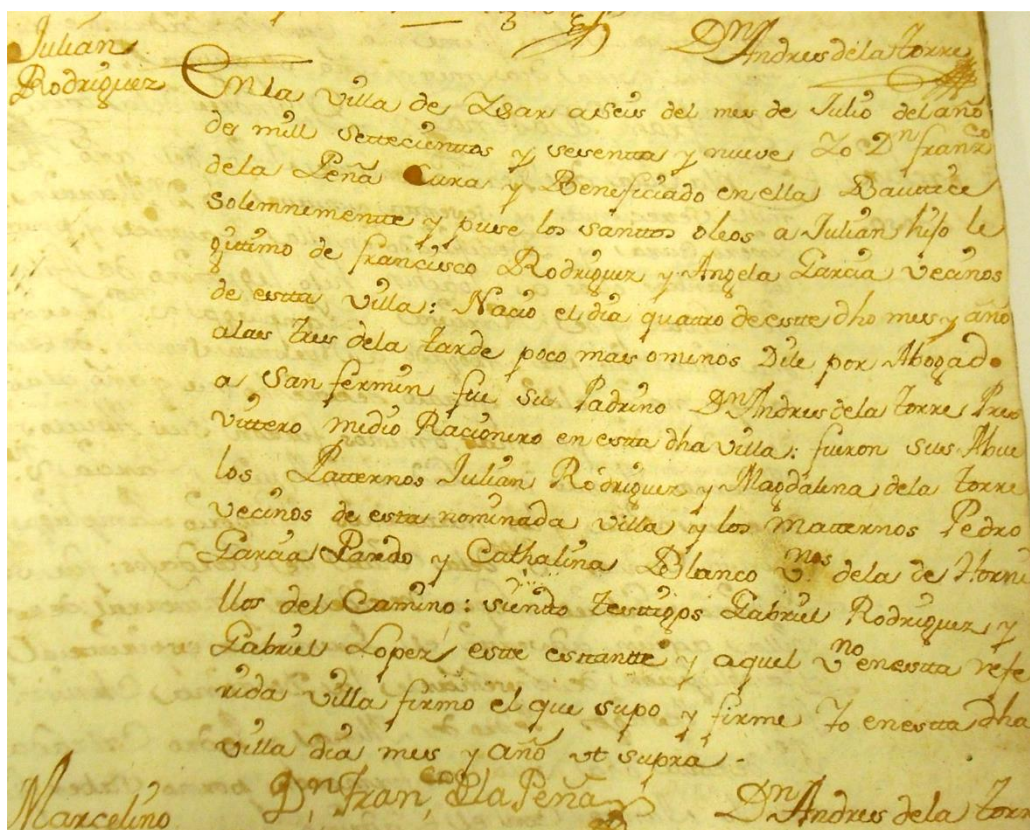 Dn Andres dela torre
Julian
Rodriguez
En la villa de Isar a seis del mes de Julio del año
de mill settecienttos y sesentta y nueve Yo Dn franco
dela Peña Cura y Beneficiado en ella Bauttice
solemnementte y puse los santtos oleos a Julian hijo le
gittimo de francisco Rodriguez y Angela Garcia vecinos
de estta villa: Nacio el dia quattro de estte dho mes y año
a las tres dela tarde poco mas o menos Dile por Abogado
a San fermin fue su Padrino Dn Andres dela torre Pres
vittero medio Racionero en estta dha villa: fueron sus Abue
los Patternos Julian Rodriguez y Magdalena dela torre
vecinos de esta nominada villa y los Matternos Pedro
Garcia Pardo y Cathalina Blanco v.nos dela de Horni
llos del Camino: siendo testtigos Gabriel Rodriguez y
Gabriel Lopez estte estantte y aquel v.no en estta refe
rida villa firmo el que supo y firme Yo en estta dha
villa dia mes y año ut supra.
Dn Franco dla Peña
Dn Andres dela torre
Marcelino